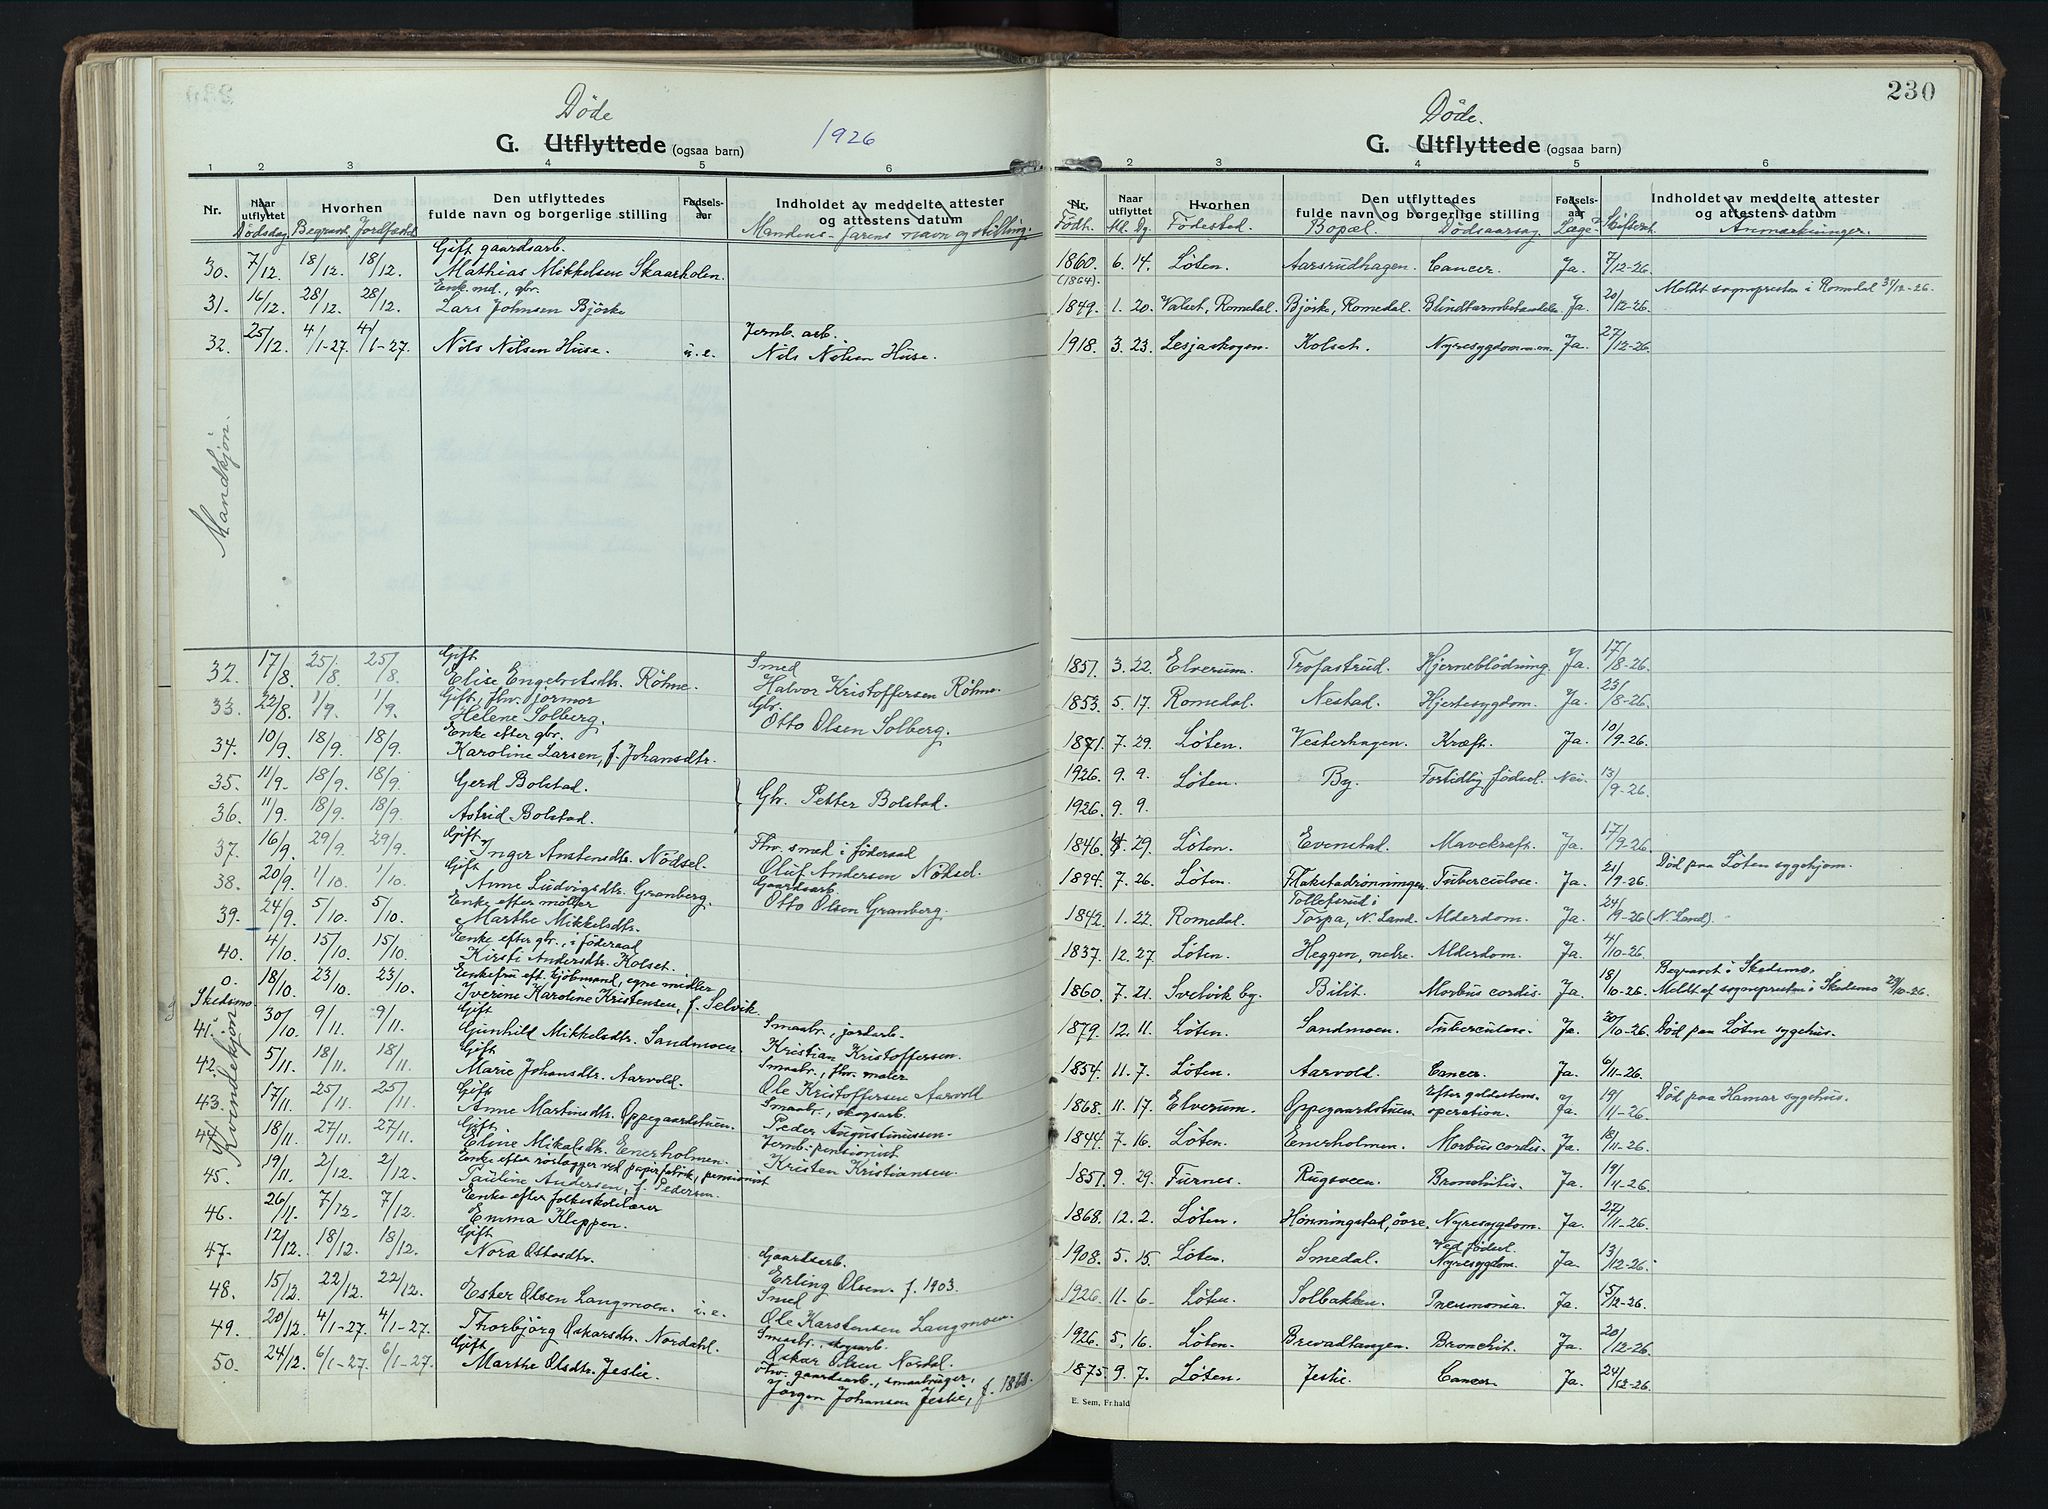 230
Døde
G. Utflyttede (ogsaa barn)
1926
1 2 3 4 5 6
Nr. Naar utflyttet Hvorhen Den utflyttedes fulde navn og borgerlige stilling Fødsels-aar Indholdet av meddelte attester og attestens datum
Dødsdag Begravet Jordfæstet Mandens - farens navn og stilling.
Gift gaardsarb.
30. 7/12. 18/12. 18/12. Mathias Mikkelsen Skaarholen.
Enk.md., gbr.
31. 16/12. 28/12. 28/12. Lars Johnsen Bjørke
Jernb. arb.
32. 25/12. 4/1-27. 4/1-27. Nils Nilsen Huse. u.e. Nils Nilsen Huse.
Mandkjøn.
Gift Smed
32. 17/8. 25/8. 25/8. Elise Engebretsdtr. Røhne. Halvor Kristoffersen Røhne.
Gift, fhv. jormor Gbr.
33. 22/8. 1/9. 1/9. Helene Solberg. Otto Olsen Solberg.
Enke efter gbr.
34. 10/9. 18/9. 18/9. Karoline Larsen, f. Johansdtr.
35. 11/9. 18/9. 18/9. Gerd Bolstad. Gbr. Petter Bolstad.
36. 11/9. 18/9. 18/9. Astrid Bolstad.
Gift Fhv. smed i føderaad
37. 16/9. 29/9. 29/9. Inger Anstensdtr. Nødsel. Oluf Andersen Nødsel.
Gift Gaardsarb.
38. 20/9. 1/10. 1/10. Anne Ludvigsdtr. Granberg. Otto Olsen Granberg.
Enke efter møller
39. 24/9. 5/10. 5/10. Marthe Mikkelsdtr.
Enke efter gbr., i føderaad
40. 4/10. 15/10. 15/10. Kirsti Andersdtr. Kolset.
Enkefru eft. kjøbmand, egne midler
0. Skedsmo 18/10. 23/10. 23/10. Iverine Karoline Kristensen, f. Selvik.
Gift Smaabr., jordarb.
41. 30/10. 9/11. 9/11. Gunhild Mikkelsdtr. Sandmoen Kristian Kristoffersen.
Gift Smaabr., fhv. maler
42. 5/11. 18/11. 18/11. Marie Johansdtr. Aarvold. Ole Kristoffersen Aarvold
Gift Smaabr., skogsarb.
43. 17/11. 25/11. 25/11. Anne Martinsdtr. Oppegaardstuen. Peder Augustinussen.
Gift Jernb. pensionist
44. 18/11. 27/11. 27/11. Eline Mikalsdtr. Enerholmen. Kristen Kristiansen.
Enke efter rørlægger ved papirfabrik, pensionist
45. 19/11. 2/12. 2/12. Pauline Andersen, f. Pedersen.
Enke efter folkeskolelærer
46. 26/11. 7/12. 7/12. Emma Kleppen.
Gift Gaardsarb.
47. 12/12. 18/12. 18/12. Nora Ottosdtr. Erling Olsen. f. 1903.
Smed
48. 15/12. 22/12. 22/12. Ester Olsen Langmoen. u.e. Ole Karstensen Langmoen.
Smaabr., skogsarb.
49. 20/12. 4/1-27. 4/1-27. Thorbjørg Oskarsdtr. Nordahl. Oskar Olsen Nordal.
Gift fhv. gaardsarb., smaabruger,
50. 24/12. 6/1-27. 6/1-27. Marthe Olsdtr. Jeslie. Jørgen Johansen Jeslie, f. 1868.
Kvindekjøn
Døde.
G. Utflyttede (ogsaa barn)
2 3 4 5 6
Nr. Naar utflyttet Hvorhen Den utflyttedes fulde navn og borgerlige stilling Fødsels-aar Indholdet av meddelte attester og attestens datum
Født. Md. Dg. Fødested. Bopæl. Dødsaarsag. Læge? Skifteret. Anmerkninger.
1860. 6. 14. Løten. Aarsrudhagen. Cancer. Ja. 7/12-26.
(1864)
1849. 1. 20. Valset, Romedal. Bjørke, Romedal. Blindtarmsbetændelse. Ja. 20/12-26. Meldt sognepresten i Romedal 31/12-26.
1918. 3. 23. Lesjaskogen. Kolset. Nyresygdom Ja. 27/12-26.
1851. 3. 22. Elverum. Trofastrud. Hjerneblødning. Ja. 17/8-26.
1853. 5. 17. Romedal. Nestad. Hjertesygdom. Ja. 23/8-26.
1871. 7. 29. Løten. Vesterhagen. Kræft. Ja. 10/9-26.
1926. 9. 9. Løten. By. Fortidlig fødsel. Nei. 13/9-26.
1926. 9. 9.
1846. 4. 29. Løten. Evenstad. Mavekræft. Ja. 17/9-26.
1894. 7. 26. Løten. Flakstadrønningen. Tuberculose. Ja. 21/9-26. Død paa Løten sygehjem.
Tollefsrud i
1842. 1. 22. Romedal. Torpa, N. Land. Alderdom. Ja. 24/9-26 (N. Land).
1837. 12. 27. Løten. Heggen, nedre. Alderdom. Ja. 4/10-26.
Begravet i Skedsmo.
1860. 7. 21. Svelvik by. Bilit. Morbus cordis. Ja. 18/10-26. Meldt af sognepresten i Skedsmo 29/10-26.
1879. 12. 11. Løten. Sandmoen. Tuberculose. Ja. 30/10-26. Død paa Løten sygehus.
1854. 11. 7. Løten. Aarvold. Cancer. Ja. 6/11-26.
1868. 11. 17. Elverum. Oppegaardstuen. Efter galdstens-operation. Ja. 19/11-26. Død paa Hamar sygehus.
1844. 7. 16. Løten. Enerholmen. Morbus cordis. Ja. 18/11-26.
1851. 9. 29. Furnes. Rugsveen. Bronchitis. Ja. 19/11-26.
1868. 12. 2. Løten. Hønningstad, øvre. Nyresygdom. Ja. 27/11-26.
1908. 5. 15. Løten. Smedal. Ved fødsel. Nyresygdom. Ja. 13/12-26.
1926. 11. 6. Løten. Solbakken. Pneumonia. Ja. 15/12-26.
1926. 5. 16. Løten. Brevadtangen. Bronchit. Ja. 20/12-26.
1875. 9. 7. Løten. Jeslie. Cancer. Ja. 24/12-26.
E. Sem, Fr.hald